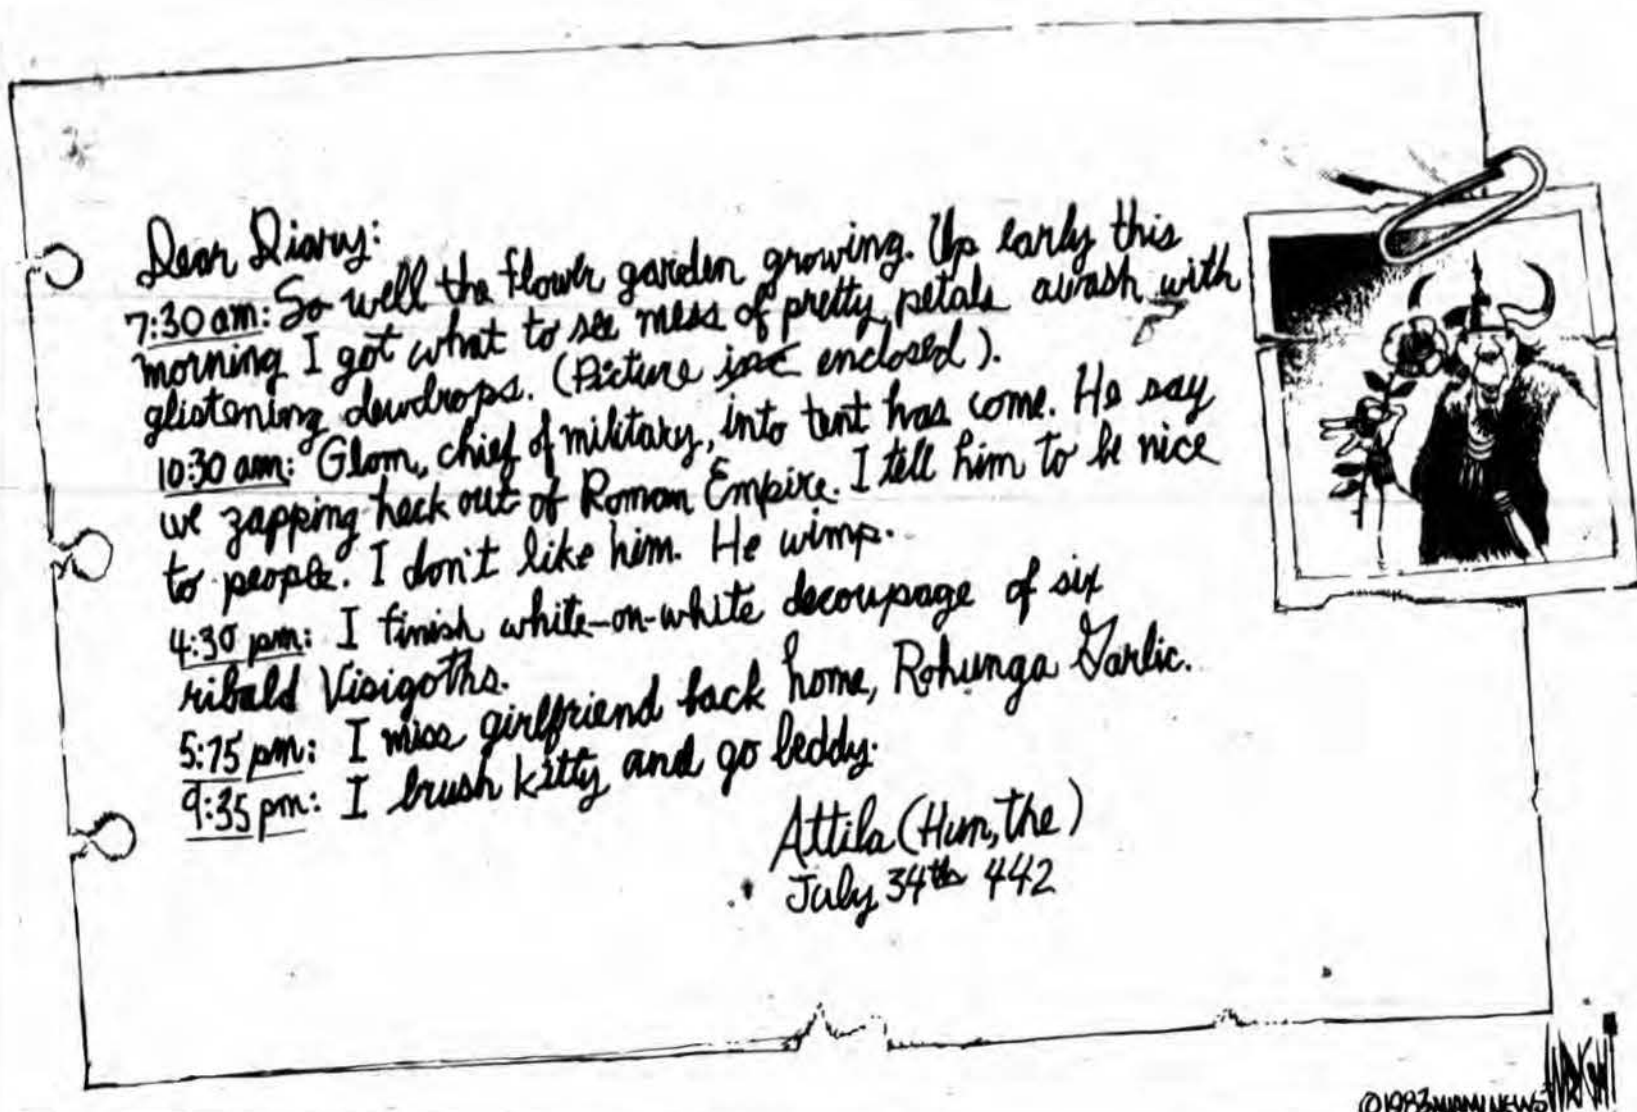 Dear Diary:
7:30 am: So well the flower garden growing. Up early this
morning I got what to see mess of pretty petals awash with
glistening dewdrops. (Picture enclosed).
10:30 am: Glom, chief of military, into tent has come. He say
we zapping heck out of Roman Empire. I tell him to be nice
to people. I don't like him. He wimp.
4:30 pm: I finish white-on-white decoupage of six
ribald Visigoths.
5:75 pm: I miss girlfriend back home, Rohunga Garlic.
9:35 pm: I brush kitty and go beddy.
Attila (Hun, the)
July 34th 442
©1983 MIAMI NEWS